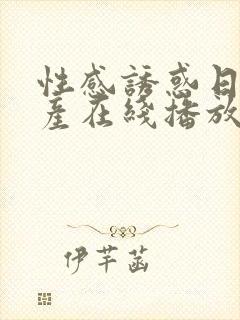 性感誘惑日
產在綫播放
伊芊菡